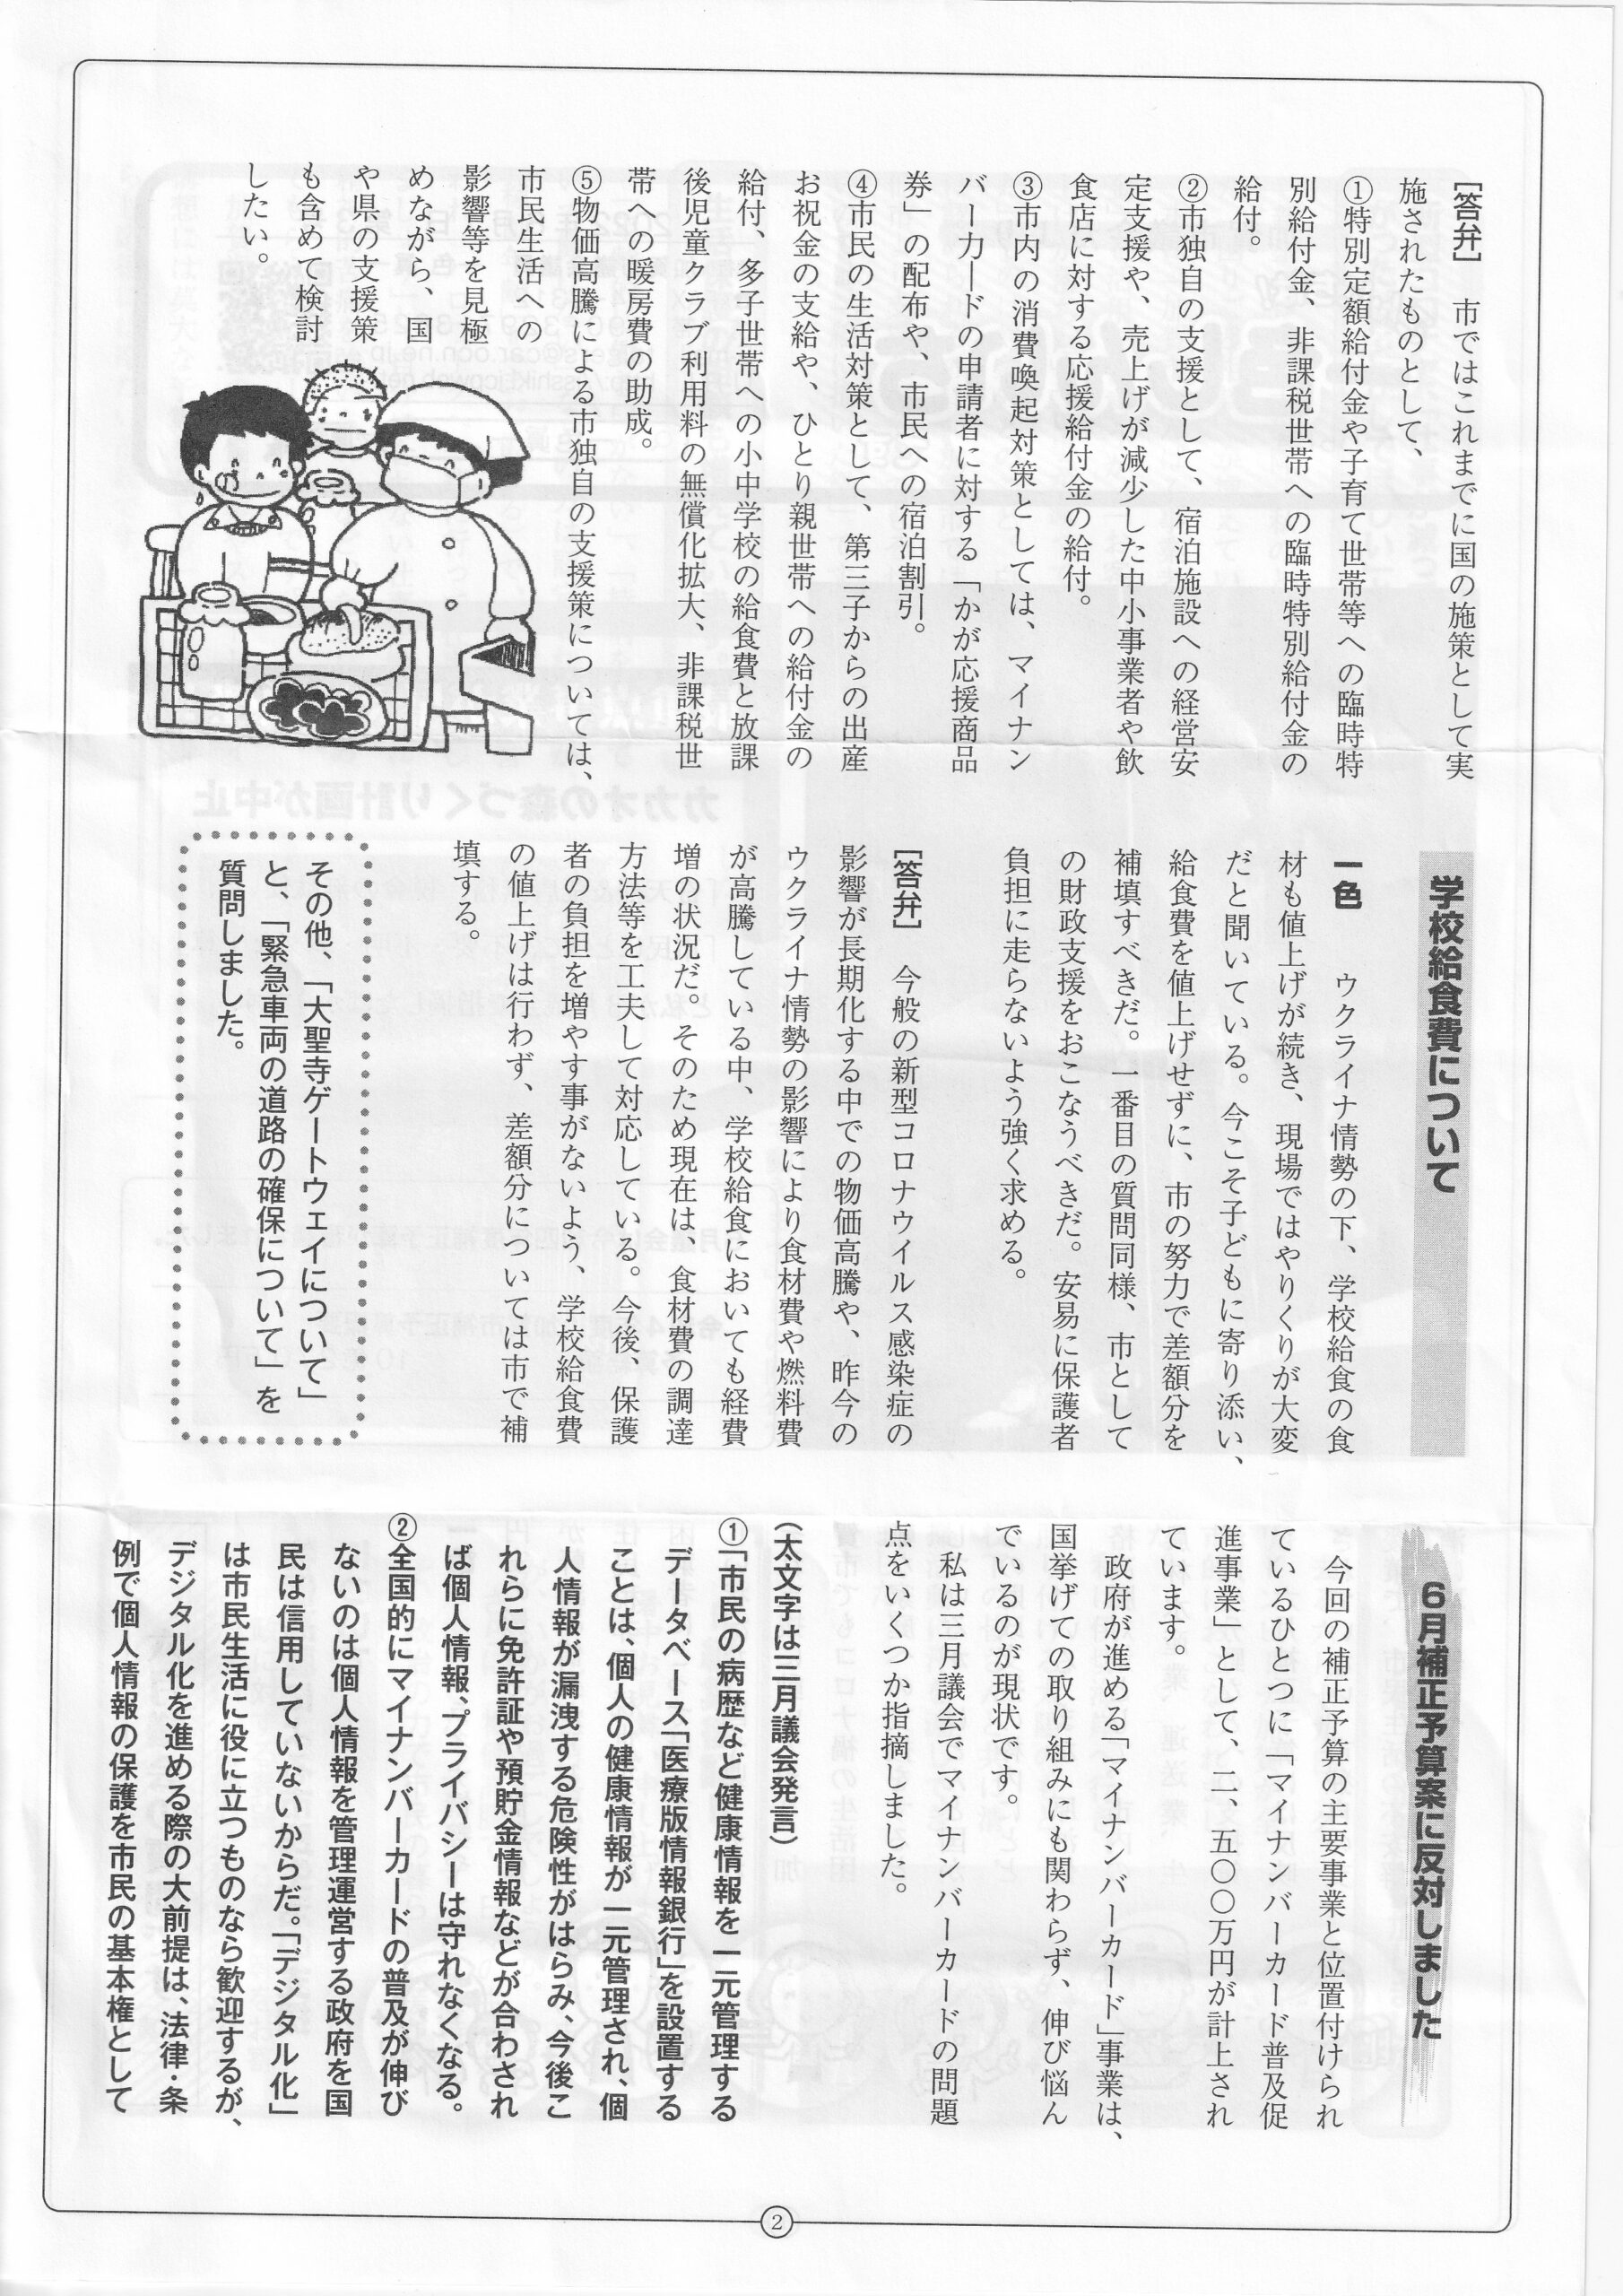 ［答弁］　市ではこれまでに国の施策として実
施されたものとして、
①特別定額給付金や子育て世帯等への臨時特
別給付金、非課税世帯への臨時特別給付金の
給付。
②市独自の支援として、宿泊施設への経営安
定支援や、売上げが減少した中小事業者や飲
食店に対する応援給付金の給付。
③市内の消費喚起対策としては、マイナン
バーカードの申請者に対する「かが応援商品
券」の配布や、市民への宿泊割引。
④市民の生活対策として、第三子からの出産
お祝金の支給や、ひとり親世帯への給付金の
給付、多子世帯への小中学校の給食費と放課
後児童クラブ利用料の無償化拡大、非課税世
帯への暖房費の助成。
⑤物価高騰による市独自の支援策については、
市民生活への
影響等を見極
めながら、国
や県の支援策
も含めて検討
したい。
学校給食費について
一色　　ウクライナ情勢の下、学校給食の食
材も値上げが続き、現場ではやりくりが大変
だと聞いている。今こそ子どもに寄り添い、
給食費を値上げせずに、市の努力で差額分を
補填すべきだ。一番目の質問同様、市として
の財政支援をおこなうべきだ。安易に保護者
負担に走らないよう強く求める。
［答弁］　今般の新型コロナウイルス感染症の
影響が長期化する中での物価高騰や、昨今の
ウクライナ情勢の影響により食材費や燃料費
が高騰している中、学校給食においても経費
増の状況だ。そのため現在は、食材費の調達
方法等を工夫して対応している。今後、保護
者の負担を増やす事がないよう、学校給食費
の値上げは行わず、差額分については市で補
填する。
その他、「大聖寺ゲートウェイについて」
と、「緊急車両の道路の確保について」を
質問しました。
６月補正予算案に反対しました
今回の補正予算の主要事業と位置付けられ
ているひとつに「マイナンバーカード普及促
進事業」として、二、五〇〇万円が計上され
ています。
政府が進める「マイナンバーカード」事業は、
国挙げての取り組みにも関わらず、伸び悩ん
でいるのが現状です。
私は三月議会でマイナンバーカードの問題
点をいくつか指摘しました。
（太文字は三月議会発言）
①「市民の病歴など健康情報を一元管理する
データベース「医療版情報銀行」を設置する
ことは、個人の健康情報が一元管理され、個
人情報が漏洩する危険性がはらみ、今後こ
れらに免許証や預貯金情報などが合わされ
ば個人情報、プライバシーは守れなくなる。
②全国的にマイナンバーカードの普及が伸び
ないのは個人情報を管理運営する政府を国
民は信用していないからだ。「デジタル化」
は市民生活に役に立つものなら歓迎するが、
デジタル化を進める際の大前提は、法律・条
例で個人情報の保護を市民の基本権として
2